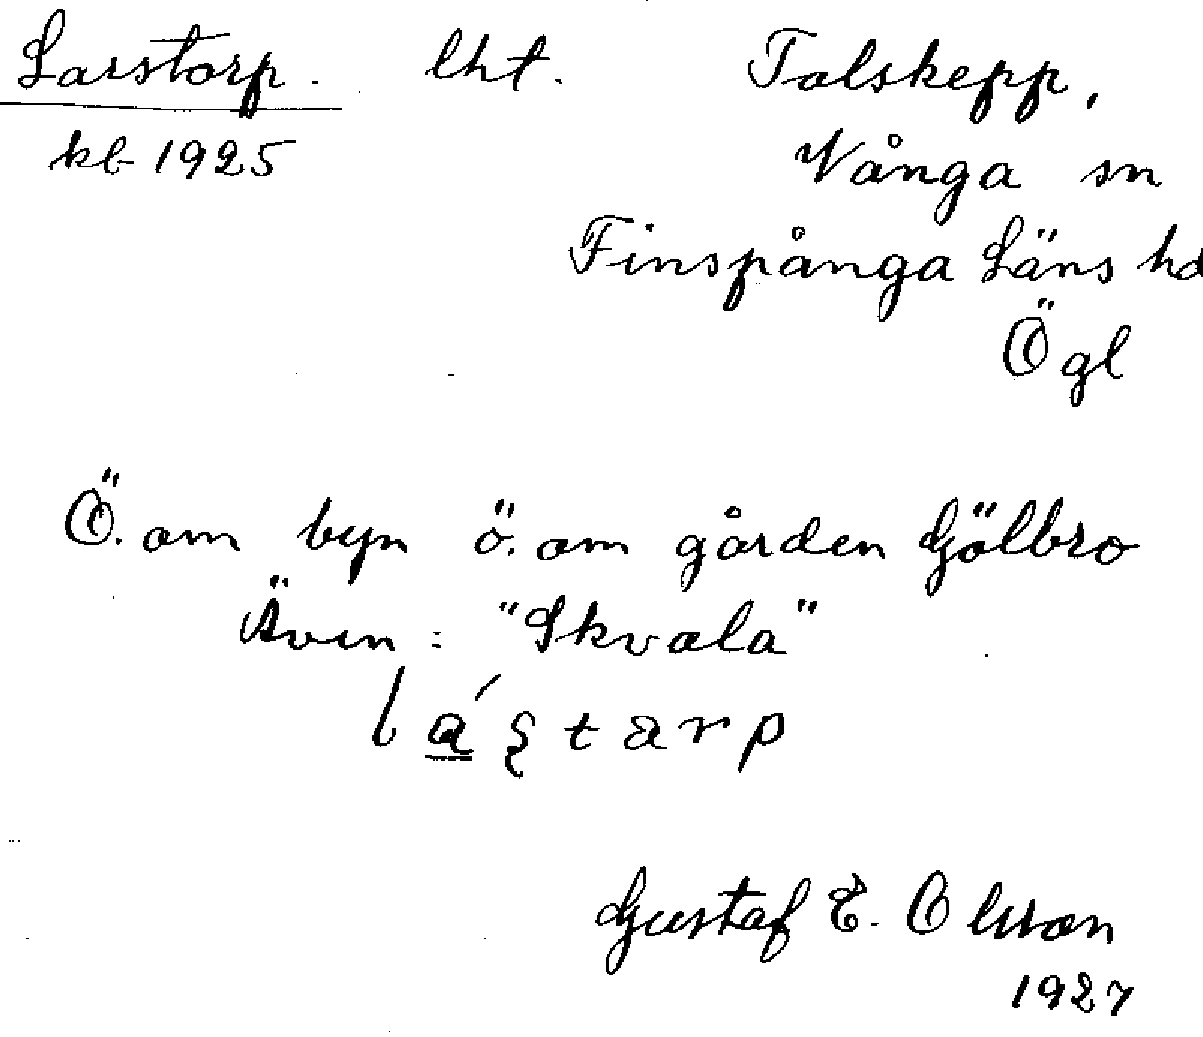 Larstorp. lht. Tolskepp,
kb 1925 Vånga sn
Finspånga Läns hd
Ögl
Ö. om byn ö. om gården Gölbro
Även: "Skvala"
Gustaf E. Olsson
1927